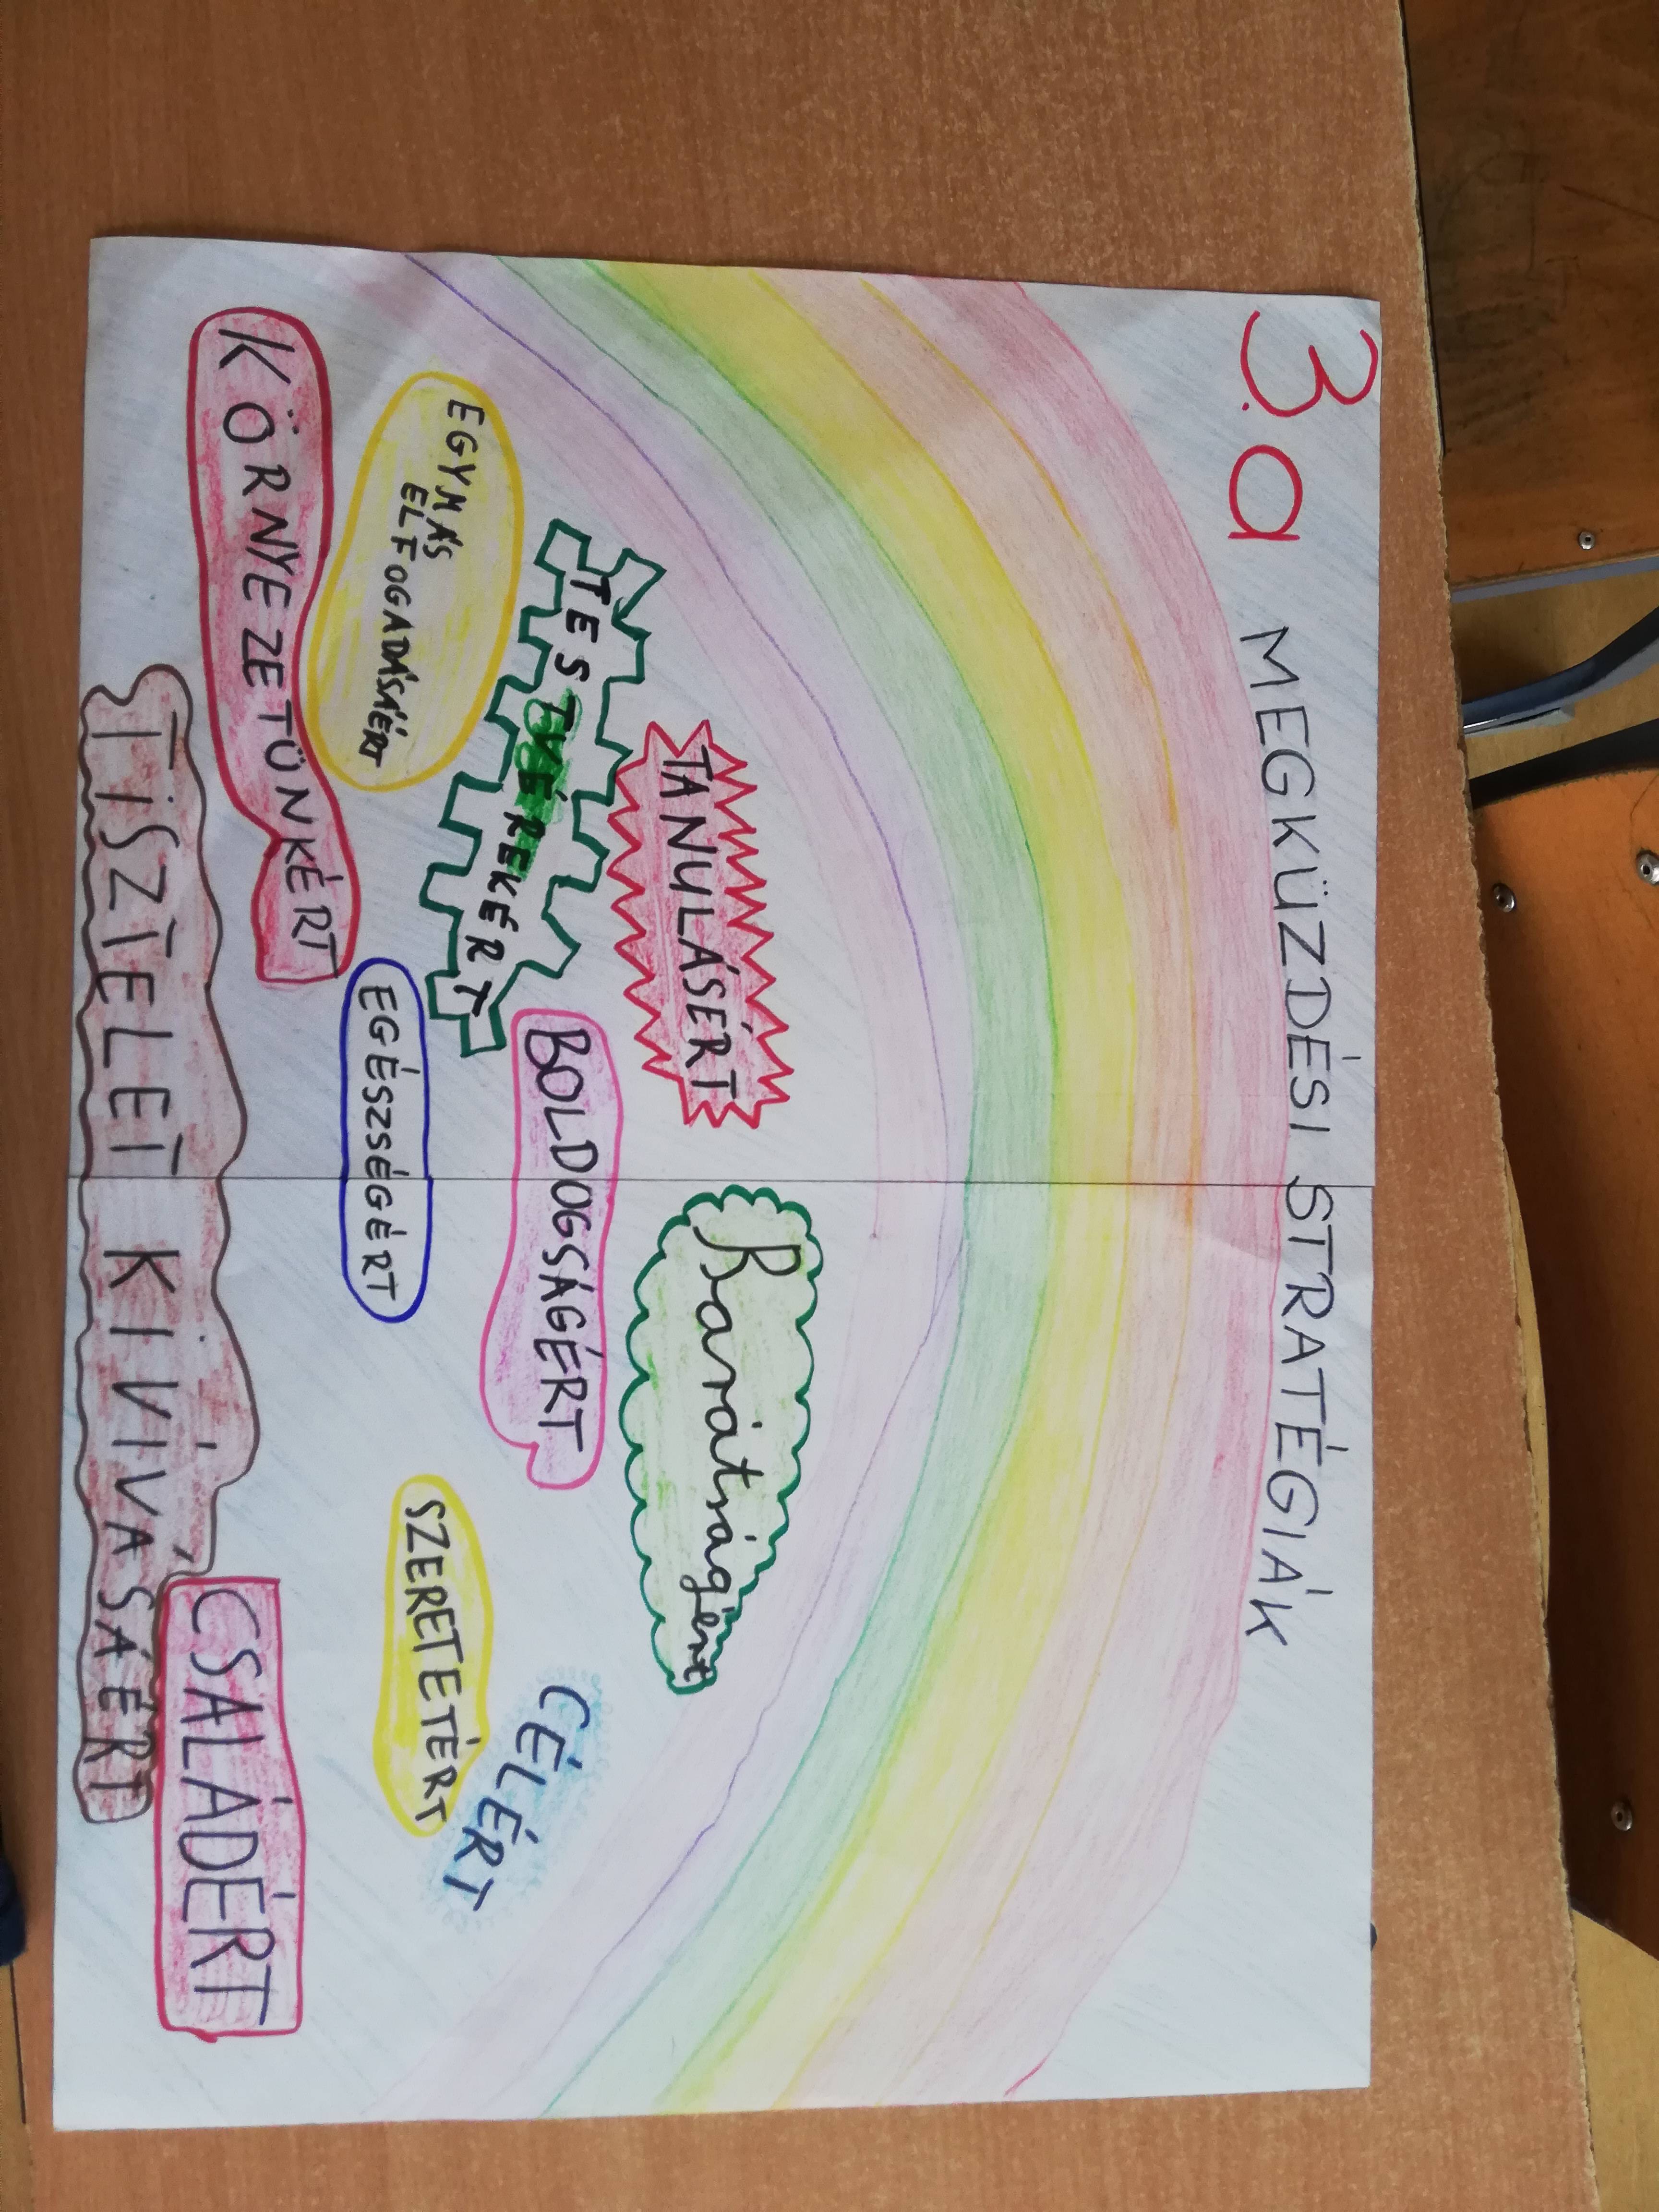 3.a MEGKÜZDÉSI STRATÉGIÁK
TANULÁSÉRT
Barátságért
TESTVÉREKÉRT
BOLDOGSÁGÉRT
CÉLÉRT
EGYMÁS
ELFOGADÁSÁÉRT
SZERETETÉRT
EGÉSZSÉGÉRT
KÖRNYEZETÜNKÉRT
CSALÁDÉRT
TISZTELET KIVÍVÁSÁÉRT